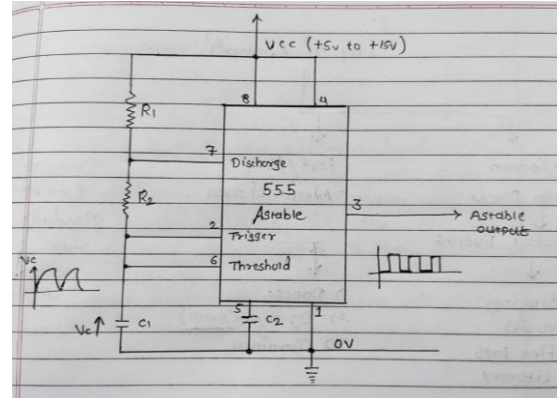 Vcc (+5v to +15V)
8
4
R1
7
Discharge
555
R2
Astable
3
Astable
output
2
Trigger
6
Threshold
Vc
5
1
Vc
C1
C2
0V